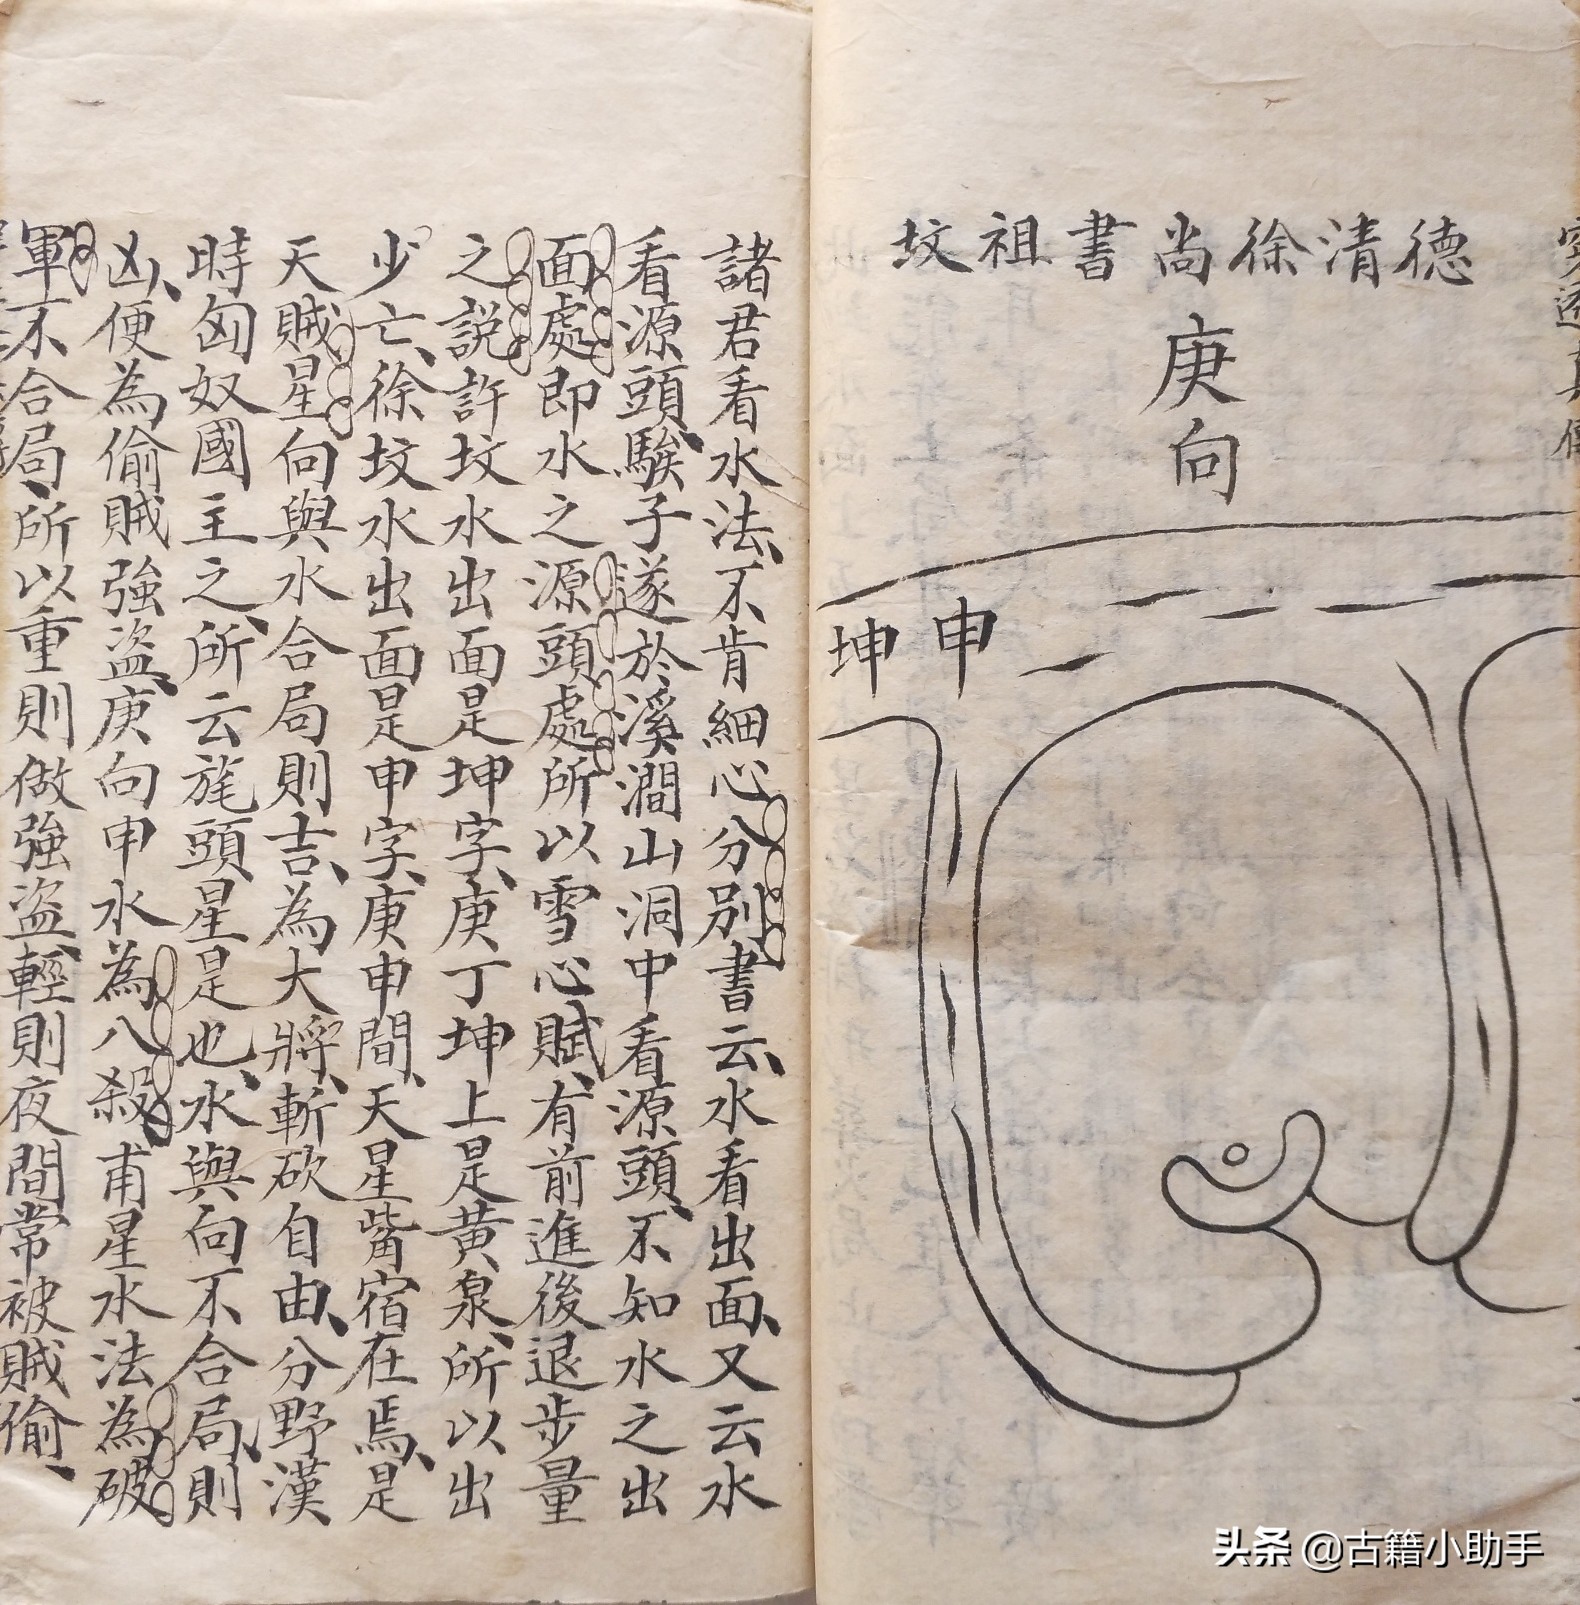 德清徐尚書祖坟
庚向
申
坤
諸君看水法、不肯細心分別書云、水看出面、又云水
看源頭、騃子遂於溪澗山洞中看源頭、不知水之出
面處即水之源頭處所以雪心賦、有前進後退步量
之説許坟水出面是坤字、庚丁坤上是黄泉、所以出
少亡、徐坟水出面是申字、庚申間、天星觜宿在焉、是
天賊星向與水合局則吉、為大將、斬砍自由、分野漢
時匈奴國主之、所云旄頭星是也、水與向不合局、則
凶、便為偷賊強盗、庚向申水為八殺甫星水法為破
軍、不合局、所以重則做強盗、輕則夜間常被賊偷、
头条 @古籍小助手